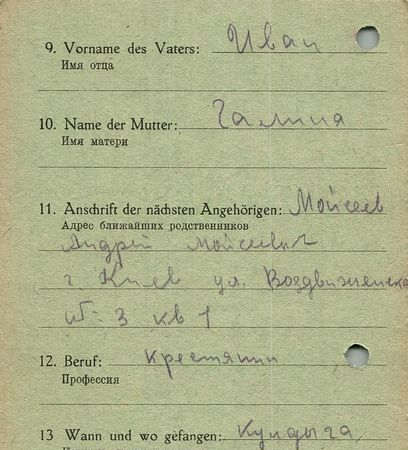 9. Vorname des Vaters: Иван
Имя отца
10. Name der Mutter: Галина
Имя матери
11. Anschrift der nächsten Angehörigen: Мойсеев
Адрес ближайших родственников
Андрій Мойсеевич
г. Киев ул. Воздвиженска
№ 3 кв 1
12. Beruf: крестянин
Профессия
13 Wann und wo gefangen: